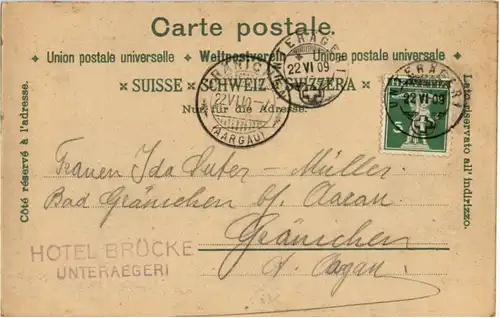 Carte postale.
✦ Union postale universelle ✦ Weltpostverein ✦ Unione postale universale ✦
✶ SUISSE ✶ SCHWEIZ ✶ SVIZZERA ✶
Nur für die Adresse.
Côté réservé à l'adresse.
Lato riservato all' indirizzo.
22 VI 09
22 VI 09
(AARGAU)
5
Frauen Ida Suter-Müller
Bad Gränichen b. Aarau
Gränichen
HOTEL BRÜCKE
UNTERAEGERI